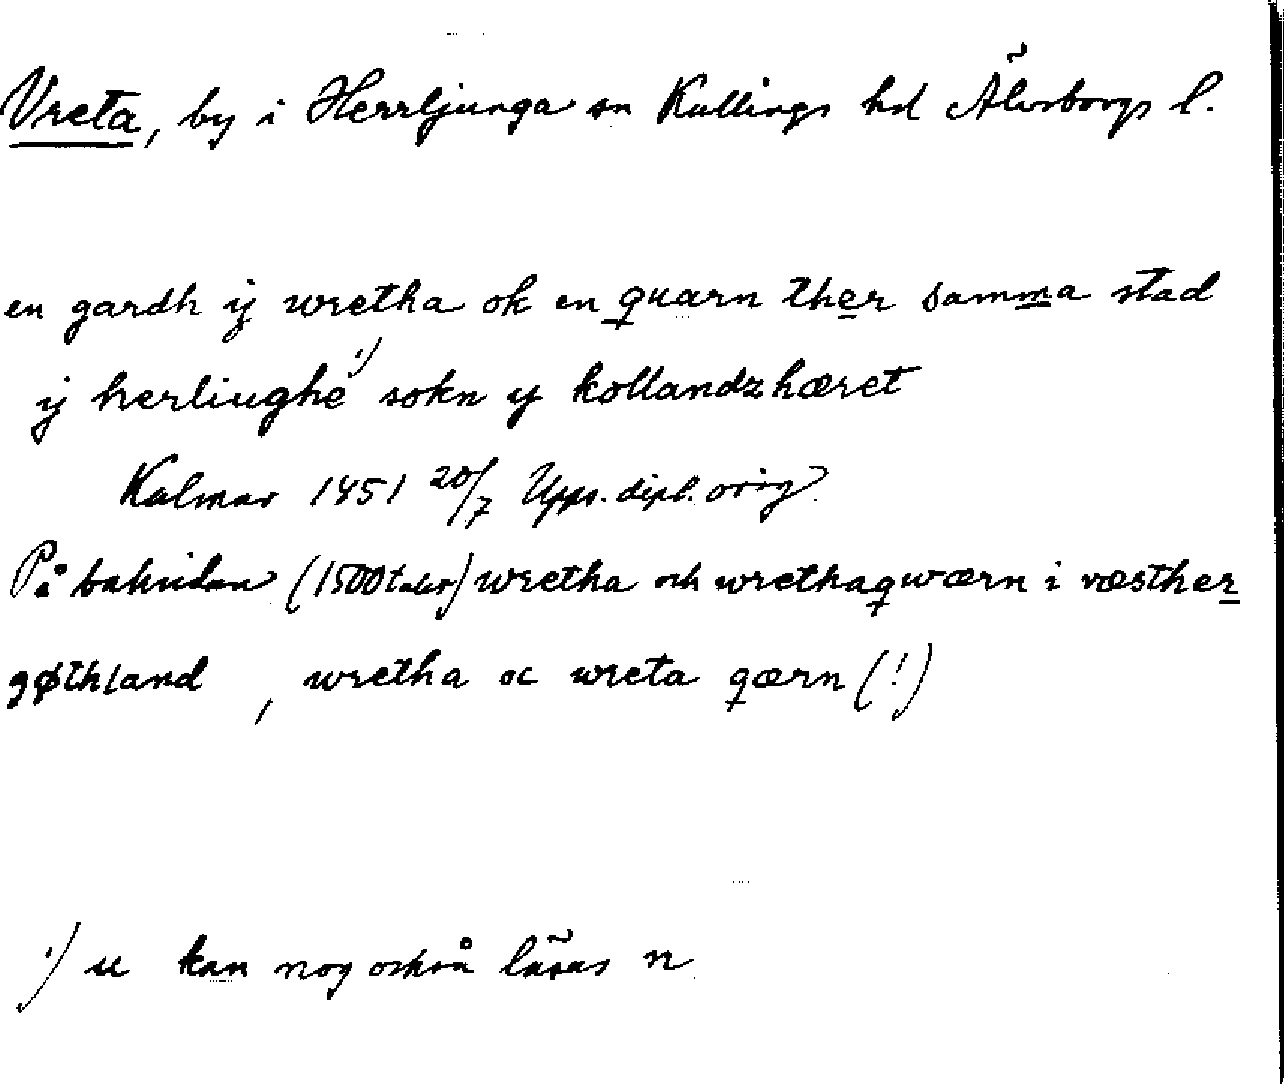 Vreta, by i Herrljunga sn Kullings hd Älvsborgs l.
en gardh ij wretha ok en quarn ther samma stad
ij herliughe ¹) sokn y kollandzhæret
Kalmar 1451 20/7 Upps. dipl. orig.
På baksidan (1500talet) wretha och wrethaqwærn i væsther
gøthland , wretha oc wreta qærn (!)
¹) u kan nog också läsas n